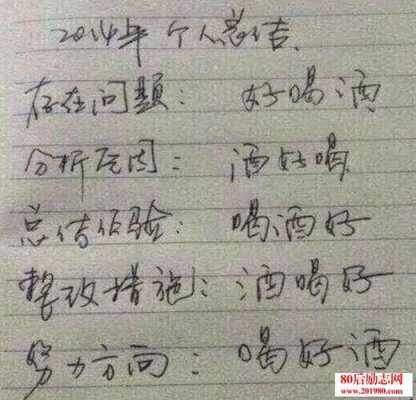 2014年个人总结.
存在问题: 好喝酒
分析原因: 酒好喝
总结经验: 喝酒好
整改措施: 酒喝好
努力方向: 喝好酒
80后励志网
www.201980.com